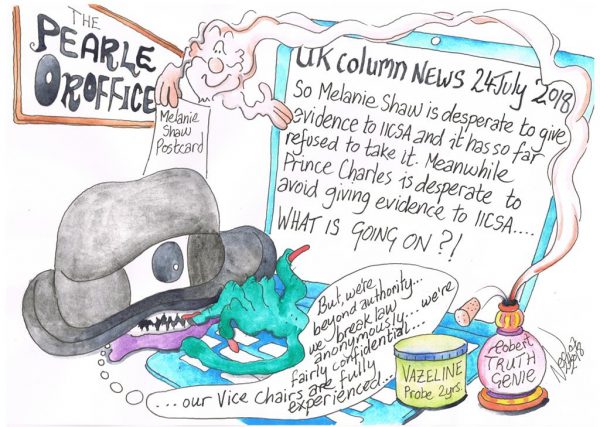 THE
PEARLE
OROFFICE
Melanie
Shaw
Postcard
UK column NEWS 24 July '2018
So Melanie Shaw is desperate to give
evidence to IICSA and it has so far
refused to take it. Meanwhile
Prince Charles is desperate to
avoid giving evidence to IICSA....
WHAT IS GOING ON?!
But, we're
beyond authority...
we break law
anonymously... we're
fairly confidential...
...our Vice Chairs are fully
experienced...
VAZELINE
Probe 2yrs.
Robert
TRUTH
GENIE